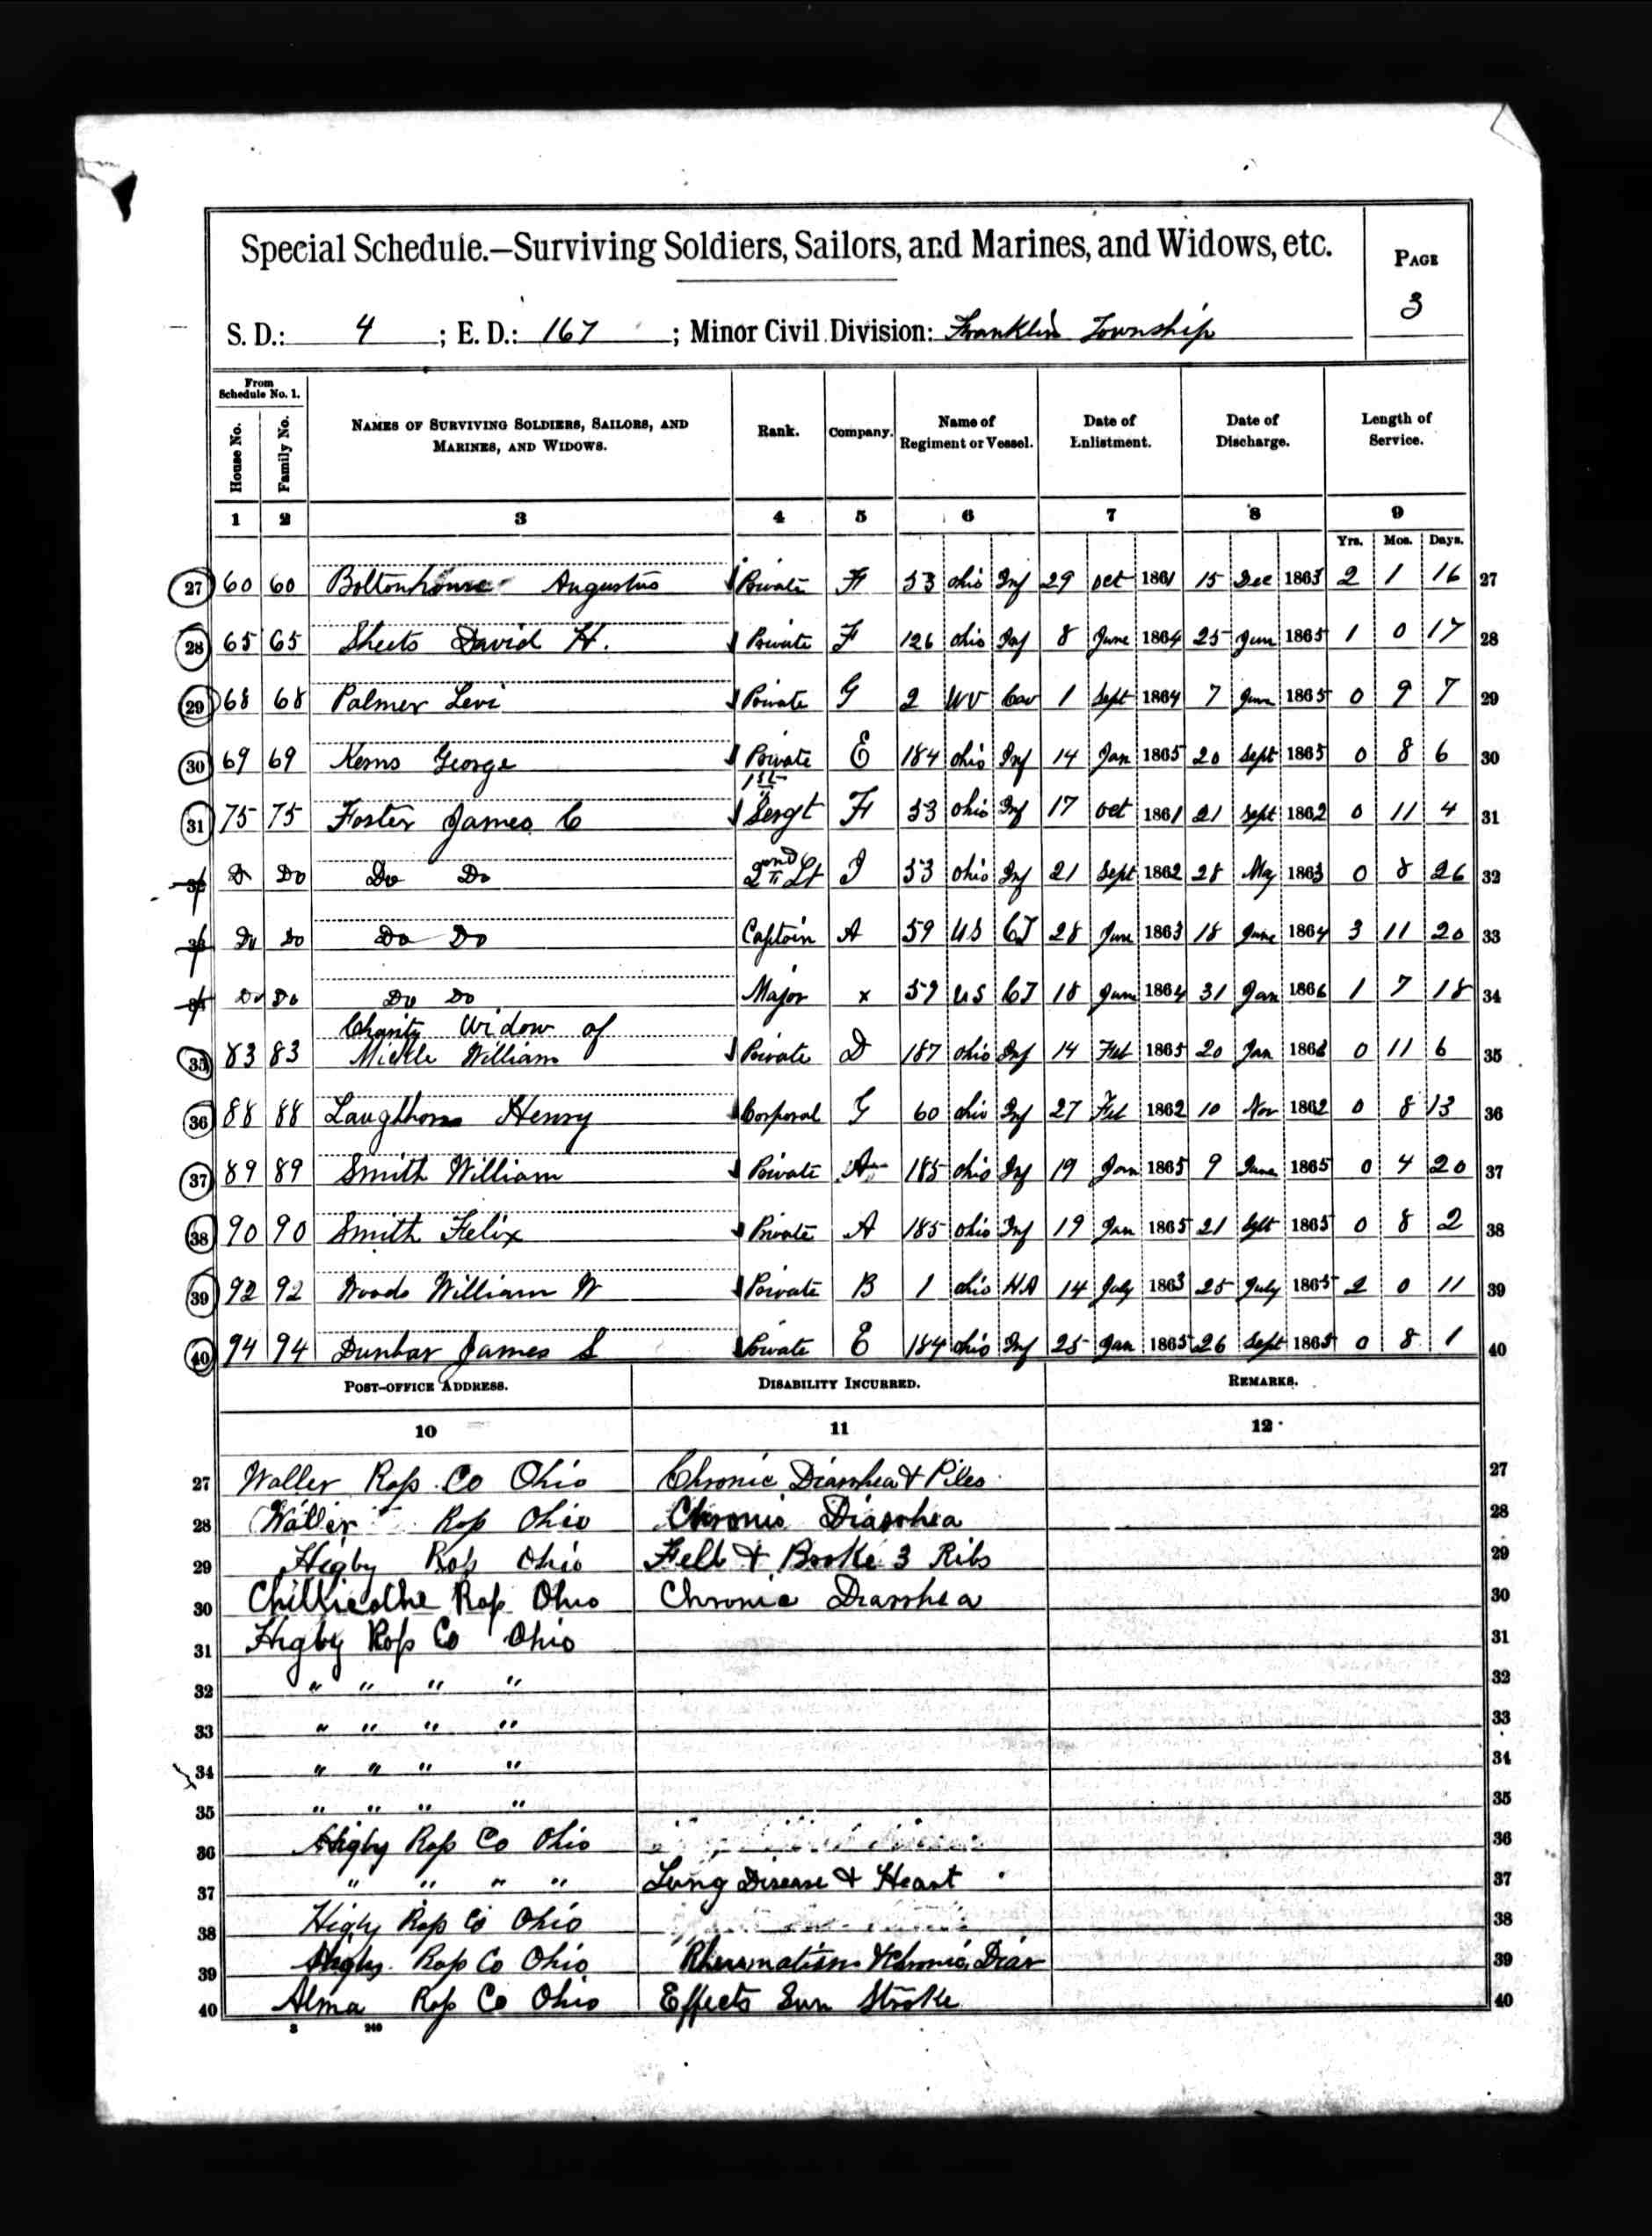 Special Schedule.—Surviving Soldiers, Sailors, and Marines, and Widows, etc.
PAGE
3
S. D.: 4 ; E. D.: 167 ; Minor Civil Division: Franklin Township
From Schedule No. 1.
House No. Family No. NAMES OF SURVIVING SOLDIERS, SAILORS, AND MARINES, AND WIDOWS. Rank. Company. Name of Regiment or Vessel. Date of Enlistment. Date of Discharge. Length of Service.
1 2 3 4 5 6 7 8 9
Yrs. Mos. Days.
27 60 60 Boltonhouse Augustus Private F 53 Ohio Inf 29 Oct 1861 15 Dec 1863 2 1 16 27
28 65 65 Sheets David H. Private F 126 Ohio Inf 8 June 1864 25 June 1865 1 0 17 28
29 68 68 Palmer Levi Private G 2 WV Cav 1 Sept 1864 7 June 1865 0 9 7 29
30 69 69 Kerns George Private E 184 Ohio Inf 14 Jan 1865 20 Sept 1865 0 8 6 30
31 75 75 Foster James C 1st Sergt F 53 Ohio Inf 17 Oct 1861 21 Sept 1862 0 11 4 31
32 Do Do Do Do 2nd Lt I 53 Ohio Inf 21 Sept 1862 28 May 1863 0 8 26 32
33 Do Do Do Do Captain A 59 US CT 28 June 1863 18 June 1864 3 11 20 33
34 Do Do Do Do Major x 59 US CT 18 June 1864 31 Jan 1866 1 7 18 34
Charity Widow of
35 83 83 Mickle William Private D 187 Ohio Inf 14 Feb 1865 20 Jan 1866 0 11 6 35
36 88 88 Henry Corporal G 60 Ohio Inf 27 Feb 1862 10 Nov 1862 0 8 13 36
37 89 89 Smith William Private A 185 Ohio Inf 19 Jan 1865 9 June 1865 0 4 20 37
38 90 90 Smith Felix Private A 185 Ohio Inf 19 Jan 1865 21 Sept 1865 0 8 2 38
39 92 92 Woods William W Private B 1 Ohio HA 14 July 1863 25 July 1865 2 0 11 39
40 94 94 Dunbar James S Private E 184 Ohio Inf 25 Jan 1865 26 Sept 1865 0 8 1 40
POST-OFFICE ADDRESS. DISABILITY INCURRED. REMARKS.
10 11 12
27 Waller Ross Co Ohio Chronic Diarrhea & Piles 27
28 Waller Ross Ohio Chronic Diarrhea 28
29 Higby Ross Ohio Fell & Broke 3 Ribs 29
30 Chillicothe Ross Ohio Chronic Diarrhea 30
31 Higby Ross Co Ohio 31
32 " " " " 32
33 " " " " 33
34 " " " " 34
35 " " " " 35
36 Higby Ross Co Ohio 36
37 " " " " Lung Disease & Heart 37
38 Higby Ross Co Ohio 38
39 Higby Ross Co Ohio Rheumatism & Chronic Diar 39
40 Alma Ross Co Ohio Effects Sun Stroke 40